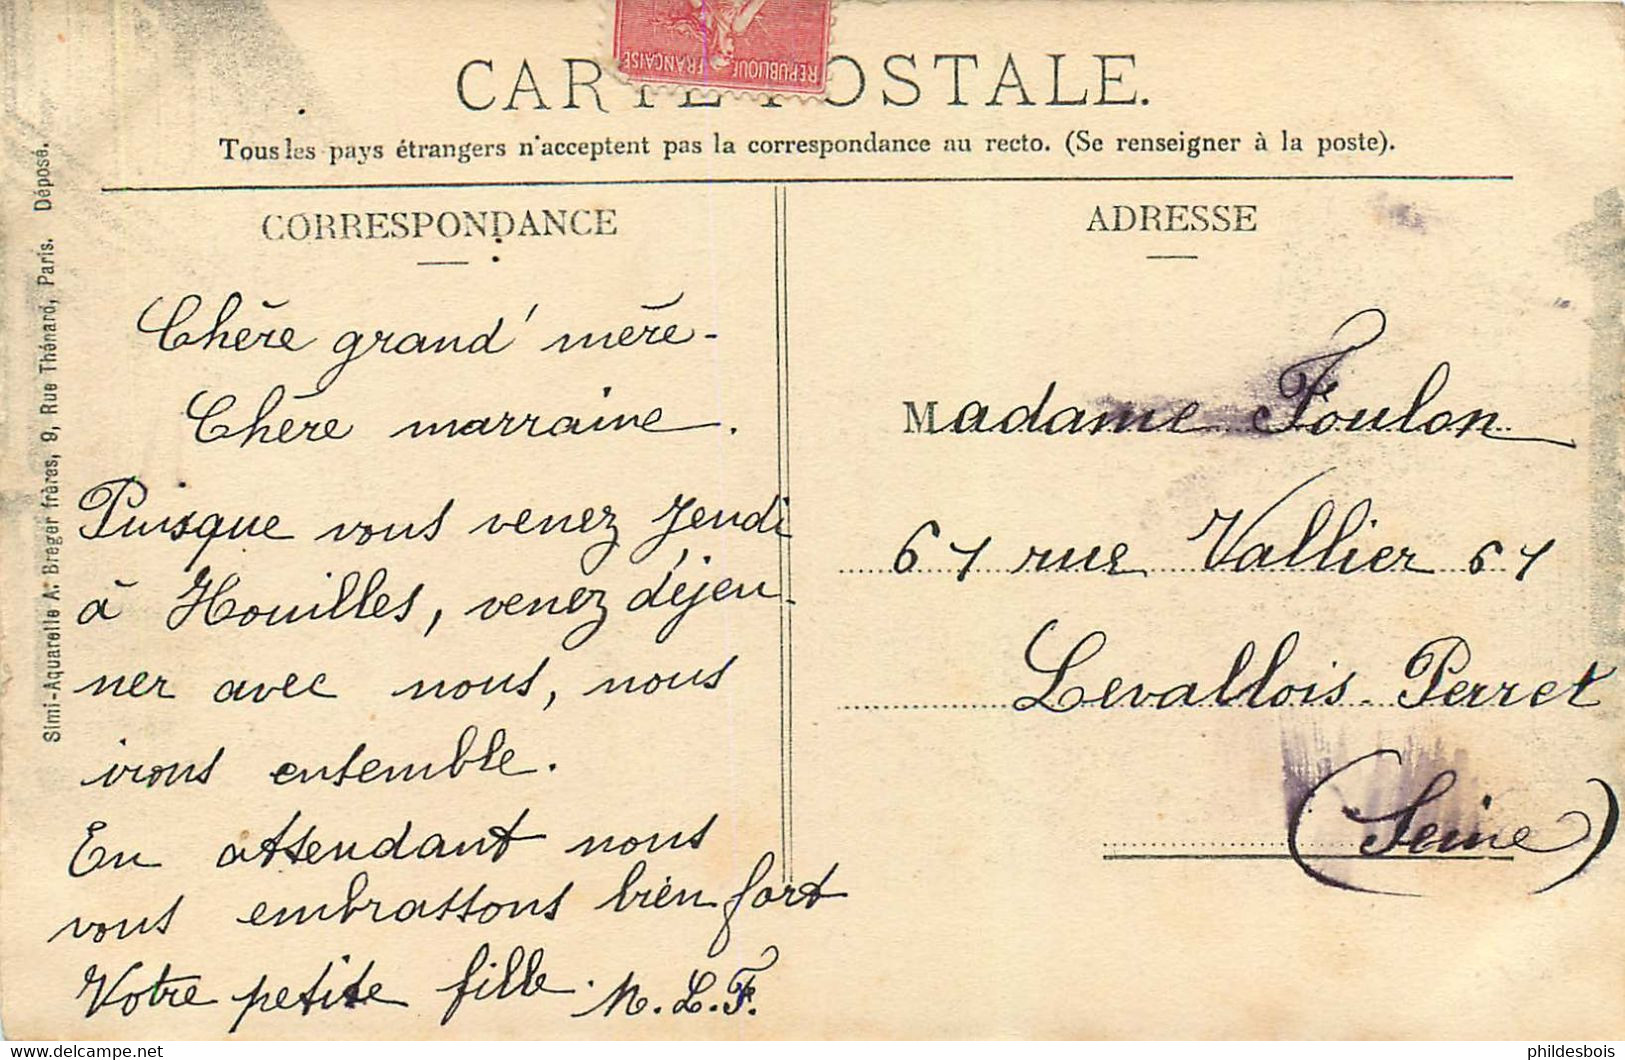 CARTE POSTALE.
RÉPUBLIQUE
FRANÇAISE
Tous les pays étrangers n'acceptent pas la correspondance au recto. (Se renseigner à la poste).
Simi-Aquarelle A. Breger frères, 9, Rue Thénard, Paris. Déposé.
CORRESPONDANCE
Chère grand' mère-
Chère marraine.
Puisque vous venez Jeudi
à Houilles, venez déjeu-
ner avec nous, nous
irons ensemble.
En attendant nous
vous embrassons bien fort
Votre petite fille. M.L.F.
ADRESSE
Madame Foulon
67 rue Vallier 67
Levallois-Perret
(Seine)
delcampe.net
phildesbois